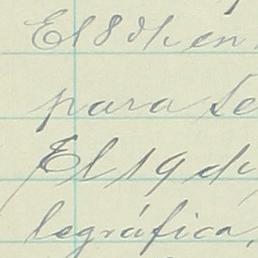 El 8 de en
para Se
El 19 de
legráfica,